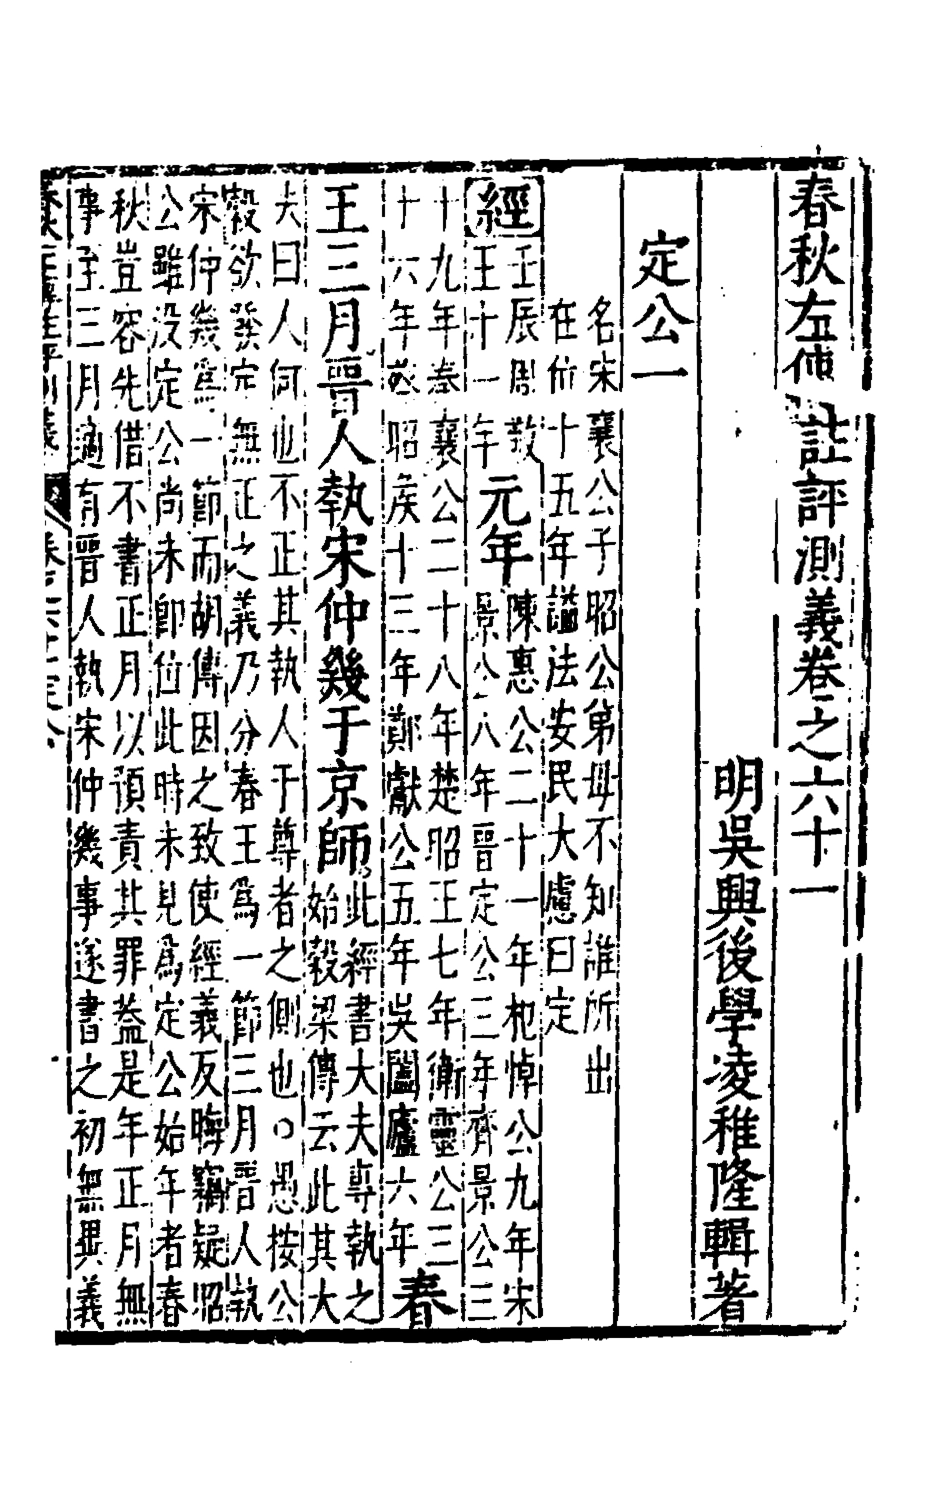 春秋左傳註評測義卷之六十一
明吳興後學凌稚隆輯著
定公一
名宋襄公子昭公弟母不知誰所出
在位十五年謚法安民大慮曰定
經 壬辰周敬
王十一年 元年 陳惠公二十一年杞悼公九年宋
景公八年晉定公三年齊景公三
十九年秦襄公二十八年楚昭王七年衛靈公三
十六年蔡昭侯十三年鄭獻公五年吳闔廬六年 春
王三月晉人執宋仲幾于京師 此經書大夫專執之
始穀梁傳云此其大
夫曰人何也不正其執人于尊者之側也○愚按公
穀欲發定無正之義乃分春王爲一節三月晉人執
宋仲幾爲一節而胡傳因之致使經義反晦竊疑昭
公雖沒定公尚未卽位此時未見爲定公始年者春
秋豈容先借不書正月以預責其罪蓋是年正月無
事至三月適有晉人執宋仲幾事遂書之初無異義